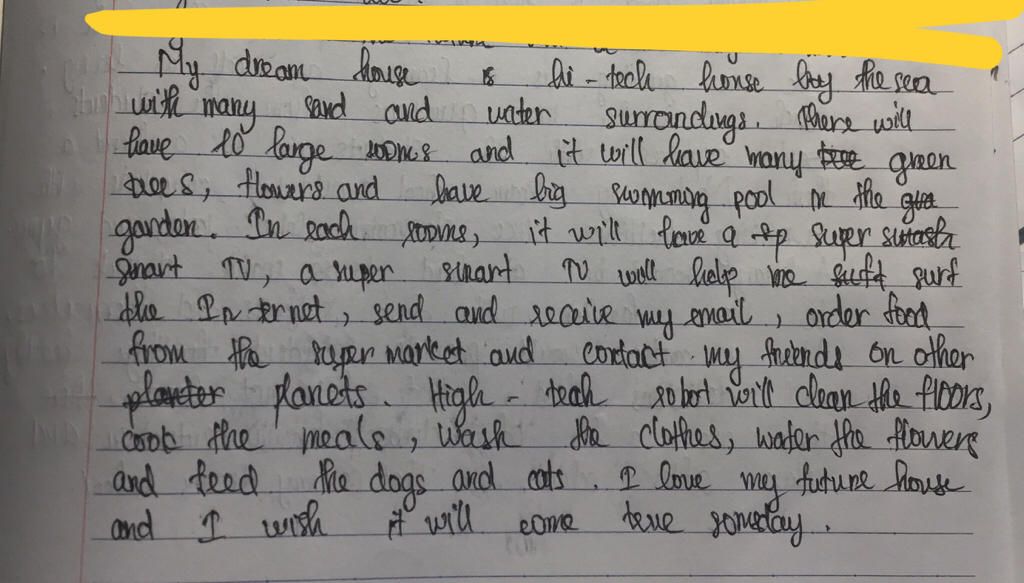 My dream house is hi-tech house by the sea
with many sand and water surroundings. There will
have 10 large rooms and it will have many tree green
trees, flowers and have big swimming pool in the
garden. In each rooms, it will have a super
smart TV, a super smart TV will help me surf
the Internet, send and receive my email, order food
from the super market and contact my friends on other
planets. High-tech robot will clean the floors,
cook the meals, wash the clothes, water the flowers
and feed the dogs and cats. I love my future house
and I wish it will come true someday.